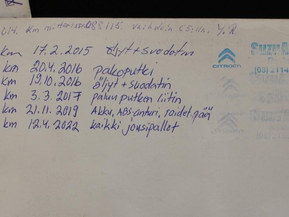 Km mittari 088115. vaihdettu
km 17.2.2015 öljyt+suodatin
km 20.4.2016 pakoputki
km 19.10.2016 öljyt+suodatin
km 3.3.2017 pakoputken liitin
km 21.11.2019 Akku, ABS-anturi, raidet.pää
km 12.4.2022 kaikki jousipallot
CITROËN